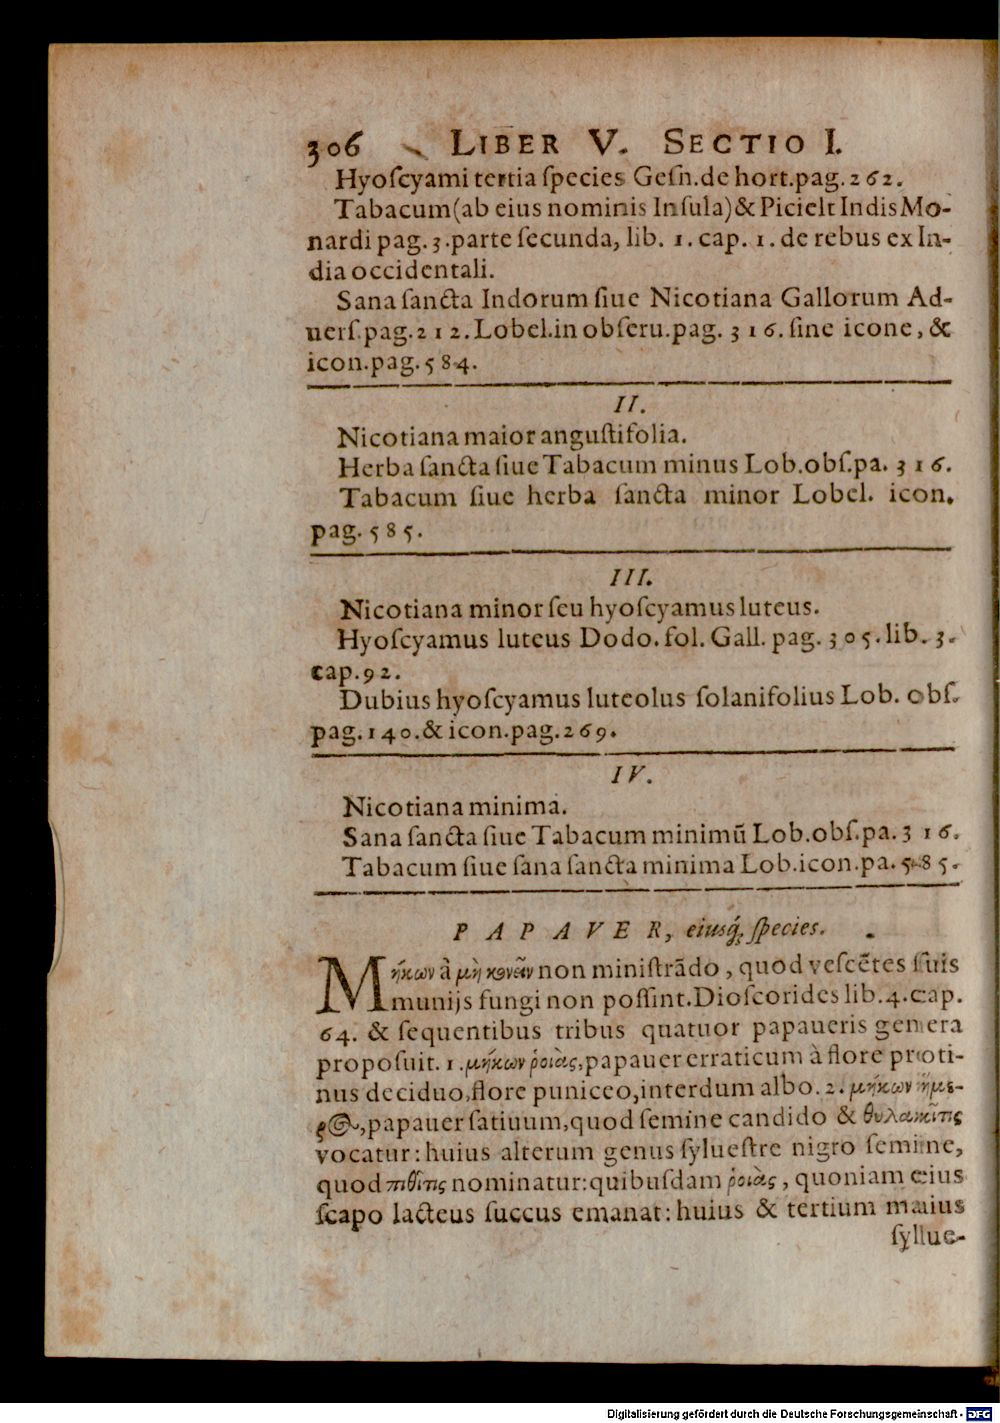 306 LIBER V. SECTIO I.
Hyoſcyami tertia ſpecies Geſn.de hort.pag.262.
Tabacum(ab eius nominis Inſula)&Picielt Indis Mo-
nardi pag.3.parte ſecunda, lib. 1.cap. 1.de rebus ex In-
dia occidentali.
Sana ſancta Indorum ſiue Nicotiana Gallorum Ad-
uerſ.pag.212.Lobel.in obſeru.pag. 316.ſine icone, &
icon.pag.584.
II.
Nicotiana maior anguſtifolia.
Herba ſancta ſiue Tabacum minus Lob.obſ.pa. 316.
Tabacum ſiue herba ſancta minor Lobel. icon.
pag.585.
III.
Nicotiana minor ſeu hyoſcyamus luteus.
Hyoſcyamus luteus Dodo.fol.Gall.pag.305.lib.3.
cap.92.
Dubius hyoſcyamus luteolus ſolanifolius Lob. obſ.
pag.140.& icon.pag.269.
IV.
Nicotiana minima.
Sana ſancta ſiue Tabacum minimũ Lob.obſ.pa.316.
Tabacum ſiue ſana ſancta minima Lob.icon.pa.585.
PAPAVER, eiusq́; ſpecies.
Μήκων à μὴ κονεῖν non miniſtrãdo, quod veſcẽtes ſuis
munijs fungi non poſſint.Dioſcorides lib.4.cap.
64. & ſequentibus tribus quatuor papaueris genera
propoſuit. 1.μήκων ῥοιὰς,papauer erraticum à flore proti-
nus deciduo,flore puniceo,interdum albo. 2. μήκων ἥμε-
ρος,papauer ſatiuum,quod ſemine candido & θυλακῖτις
vocatur: huius alterum genus ſylueſtre nigro ſemine,
quod πιθῖτις nominatur:quibuſdam ῥοιὰς, quoniam eius
ſcapo lacteus ſuccus emanat: huius & tertium maius
ſyllue-
Digitalisierung gefördert durch die Deutsche Forschungsgemeinschaft - DFG